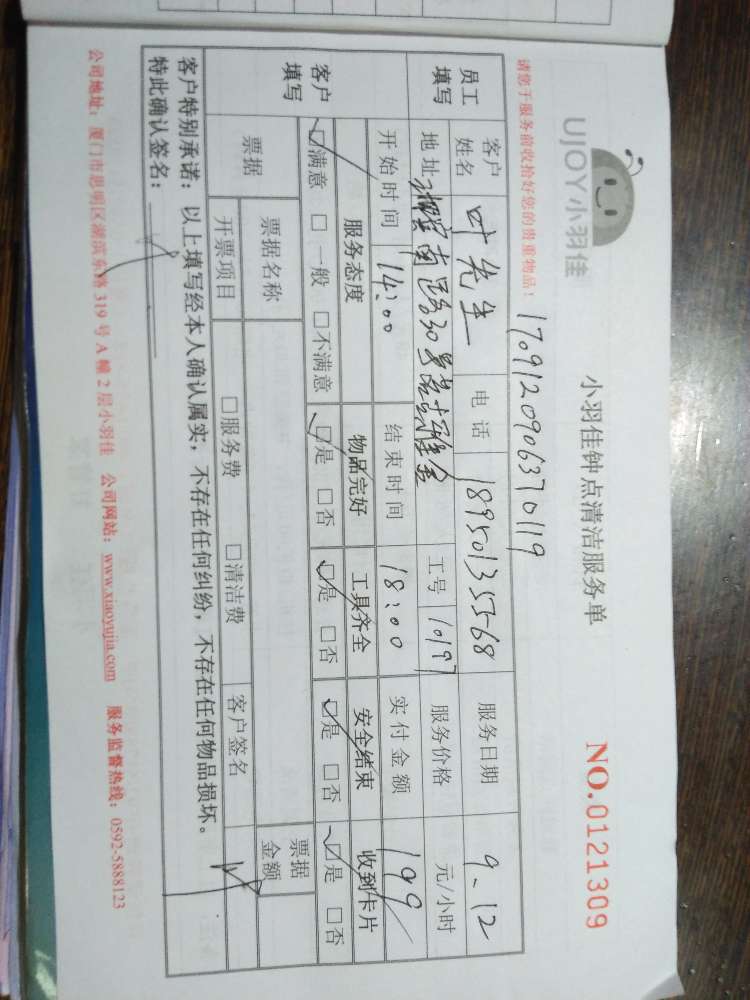 UJOY小羽佳
小羽佳钟点清洁服务单
NO.0121309
请您于服务前收拾好您的贵重物品!
1709120906370119
员工填写
客户姓名 叶先生 电话 18950135568 服务日期 9.12
地址 南路30号 工号 10197 服务价格 元/小时
开始时间 14:00 结束时间 18:00 实付金额 199
客户填写
服务态度 物品完好 工具齐全 安全结束 收到卡片
☑满意 □一般 □不满意 ☑是 □否 ☑是 □否 ☑是 □否 ☑是 □否
票据 票据名称 票据金额
开票项目 □服务费 □清洁费 客户签名
客户特别承诺:以上填写经本人确认属实,不存在任何纠纷,不存在任何物品损坏。
特此确认签名:
公司地址:厦门市思明区湖滨东路319号A幢2层小羽佳 公司网站:www.xiaoyujia.com 服务监督热线:0592-5888123